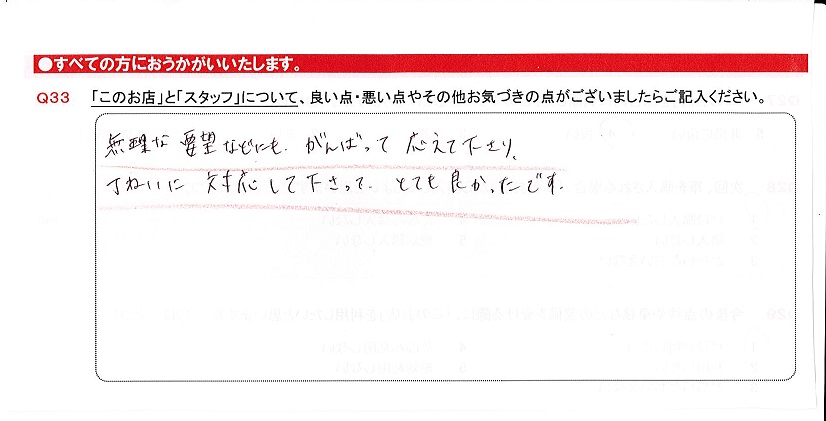 ●すべての方におうかがいいたします。
Q33 「このお店」と「スタッフ」について、良い点・悪い点やその他お気づきの点がございましたらご記入ください。
無理な要望などにも、がんばって応えて下さり、
丁ねいに対応して下さって、とても良かったです。